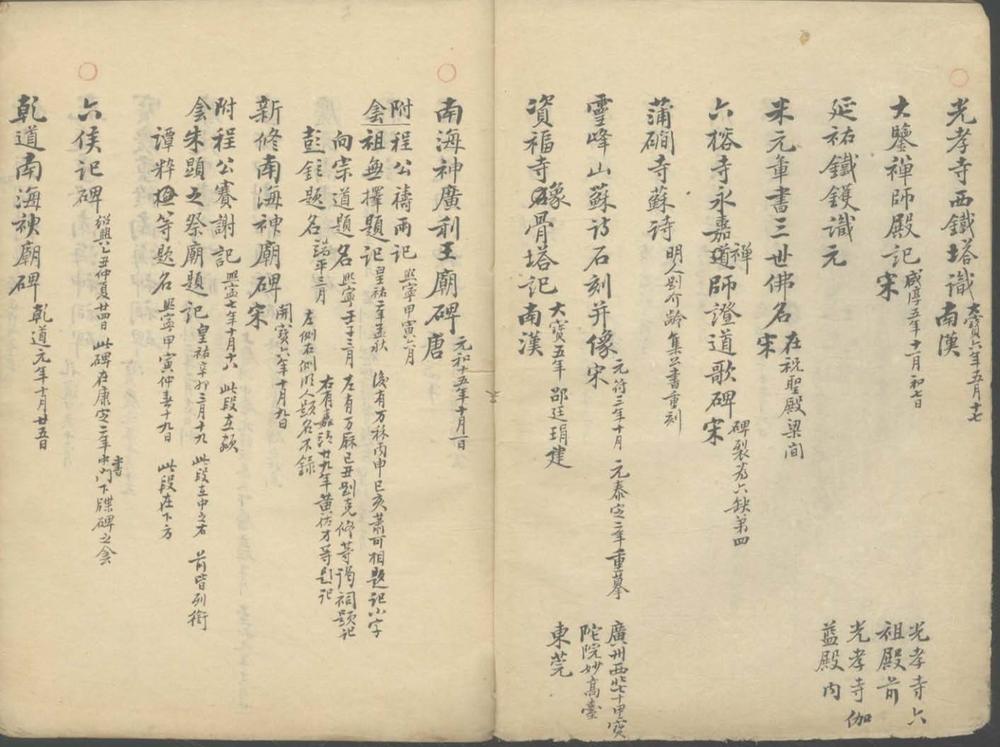 光孝寺西鐵塔識南漢 大寶六年五月十七
大鑒禪師殿記宋 咸淳五年十一月初七日 光孝寺六祖殿前
延祐鐵鑊識元 光孝寺伽藍殿內
米元章書三世佛名宋 在祝聖殿梁間
六榕寺永嘉道禪師證道歌碑宋 碑裂為六缺第四
蒲磵寺蘇詩 明人別介齡集公書重刻
靈峰山蘇詩石刻并像宋 元符三年十月 元泰定二年重摹 廣州西北七十里寶陀院妙高臺
資福寺羅像骨塔記南漢 大寶五年 邵廷琄建 東莞
南海神廣利王廟碑唐 元和十五年十月一日
附程公禱雨記 熙寧甲寅六月
陰祖無擇題記 皇祐二年孟秋 後有万林丙申巳亥蕭可相題記小字
向宗道題名 熙寧壬子三月 左有万厤己丑別克修等謁祠題記
彭鉅題名 治平三月 右有嘉靖廿九年黃佐才等題記
左側右側明人題名不錄
新修南海神廟碑宋 開寶六年十月九日
附程公賽謝記 熙寧七年十月十六 此段在額
陰朱顯之祭廟題記 皇祐辛卯三月十九 此段在中之右 前皆列銜
譚粹等題名 熙寧甲寅仲春十九日 此段在下方
六侯記碑 紹興乙丑仲夏廿四日 此碑在康定二年中書門下牒碑之陰
乾道南海神廟碑 乾道元年十月廿五日